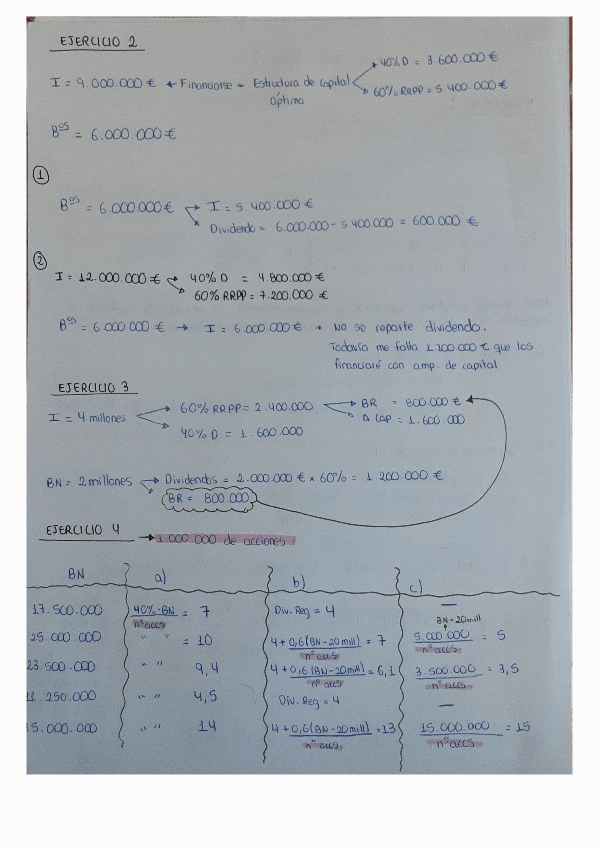 EJERCICIO 2
40% D = 3.600.000 €
I = 9.000.000 € → Financiarse → Estructura de Capital Óptima
60% RRPP = 5.400.000 €
Bºs = 6.000.000 €
1
Bºs = 6.000.000 € → I = 5.400.000 €
Dividendo = 6.000.000 - 5.400.000 = 600.000 €
2
I = 12.000.000 € → 40% D = 4.800.000 €
60% RRPP = 7.200.000 €
Bºs = 6.000.000 € → I = 6.000.000 € → No se reparte dividendo.
Todavía me falta 1.200.000 € que los
financiaré con amp. de capital
EJERCICIO 3
I = 4 millones → 60% RRPP = 2.400.000 → BR = 800.000 €
Δ Cap = 1.600.000
40% D = 1.600.000
BN = 2 millones → Dividendos = 2.000.000 € × 60% = 1.200.000 €
BR = 800.000
EJERCICIO 4 → 1.000.000 de acciones
BN a) b) c)
17.500.000 40%·BN / nº accs = 7 Div. Reg = 4 —
BN - 20 mill
25.000.000 " " = 10 4 + 0,6(BN-20mill) / nº accs = 7 5.000.000 / nº accs = 5
23.500.000 " " 9,4 4 + 0,6(BN-20mill) / nº accs = 6,1 3.500.000 / nº accs = 3,5
11.250.000 " " 4,5 Div. Reg = 4 —
5.000.000 " " 14 4 + 0,6(BN-20mill) / nº accs = 13 15.000.000 / nº accs = 15